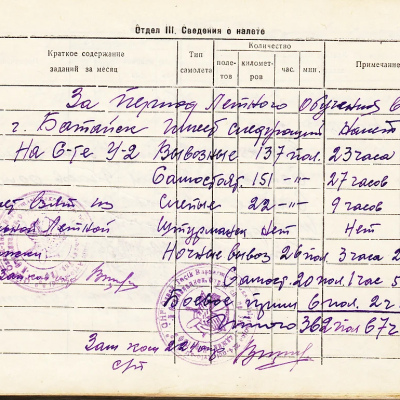 Отдел III. Сведения о налете
Краткое содержание заданий за месяц
Тип самолета
Количество
полетов
километров
час.
мин.
Примечание
За период летного обучения
г. Батайск имеет следующий налет
На С-те У-2 Вывозные 137 пол. 23 часа
Самостоят. 151 -"- 27 часов
Слепые 22 -"- 9 часов
Штурманск нет Нет
Ночные вывоз 26 пол. 3 часа 2
Самост. 20 пол. 1 час 5
Боевое прим 6 пол. 2 ч.
Итого 362 пол 67 ч